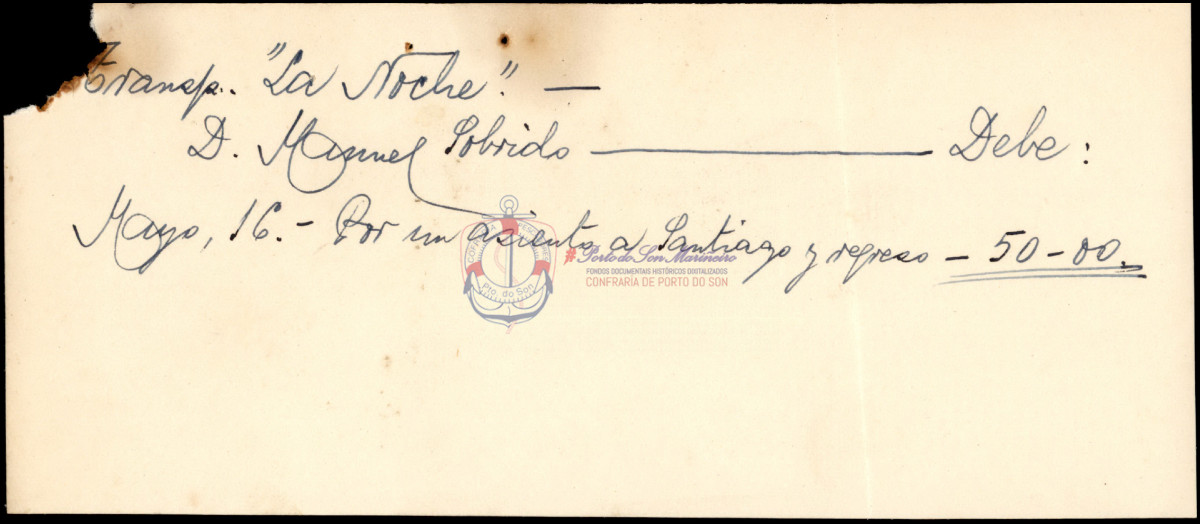 Transp. "La Noche". —
D. Manuel Sobrido — Debe:
Mayo, 16. - Por un asiento a Santiago y regreso - 50-00.
COFRARÍA
Pto. do Son
#Porto do Son Mariñeiro
FONDOS DOCUMENTAIS HISTÓRICOS DIXITALIZADOS
CONFRARÍA DE PORTO DO SON